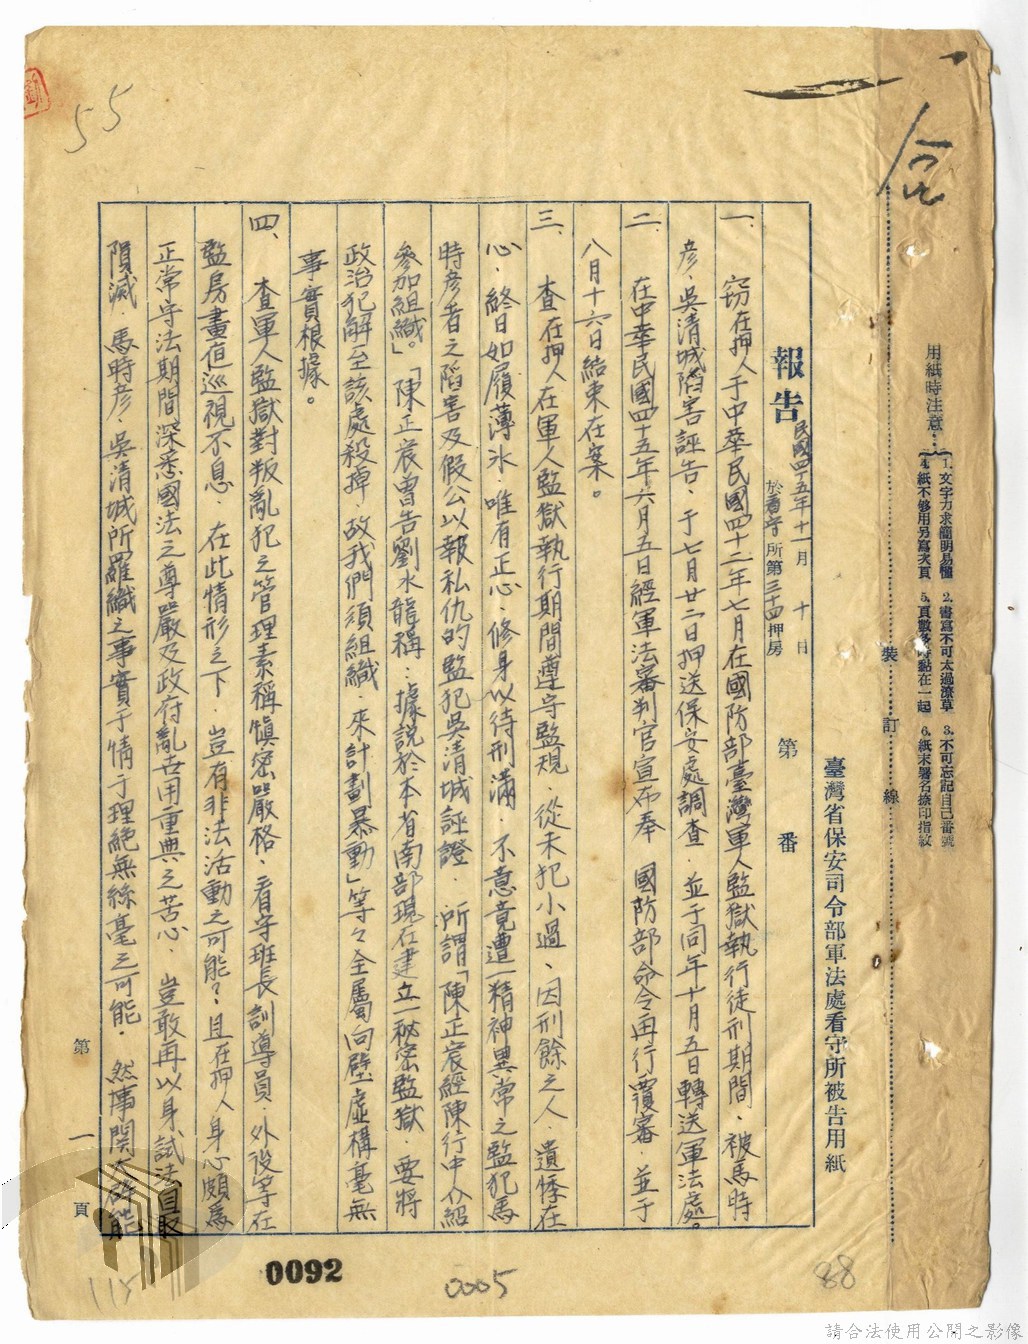 用紙時注意：
1. 文字力求簡明易懂
2. 書寫不可太過潦草
3. 不可忘記自己番號
4. 紙不够用另寫次頁
5. 頁數多時黏在一起
6. 紙末署名捺印指紋
裝 訂 線
臺灣省保安司令部軍法處看守所被告用紙
報告 民國四十五年十一月十日
於看守所第三十四押房
第 番
一、窃在押人于中華民國四十二年七月在國防部臺灣軍人監獄執行徒刑期間、被馬時
彦、吳清城陷害誣告、于七月廿二日押送保安處調查、並于同年十月五日轉送軍法處。
二、在中華民國四十五年六月五日經軍法審判官宣布奉 國防部命令再行覆審、並于
八月十六日結束在案。
三、查在押人在軍人監獄執行期間遵守監規、從未犯小過、因刑餘之人、遺悸在
心、終日如履薄氷、唯有正心、修身以待刑滿、不意竟遭一精神異常之監犯馬
時彥者之陷害及假公以報私仇的監犯吳清城誣證、所謂「陳正宸經陳行中介紹
參加組織。」「陳正宸曾告劉水龍稱：據說於本省南部現在建立一秘密監獄、要將
政治犯解至該處殺掉、故我們須組織、來計劃暴動」等々全屬向壁虛構毫無
事實根據。
四、查軍人監獄對叛亂犯之管理素稱慎密嚴格、看守班長訓導員、外役等在
監房晝夜巡視不息、在此情形之下、豈有非法活動之可能？、且在押人身心頗為
正常守法期間深悉國法之尊嚴及政府亂世用重典之苦心、豈敢再以身試法自取
隕滅、馬時彥、吳清城所羅織之事實于情于理絕無絲毫之可能、然事関
第一頁
55
0092
0005
88
115
請合法使用公開之影像